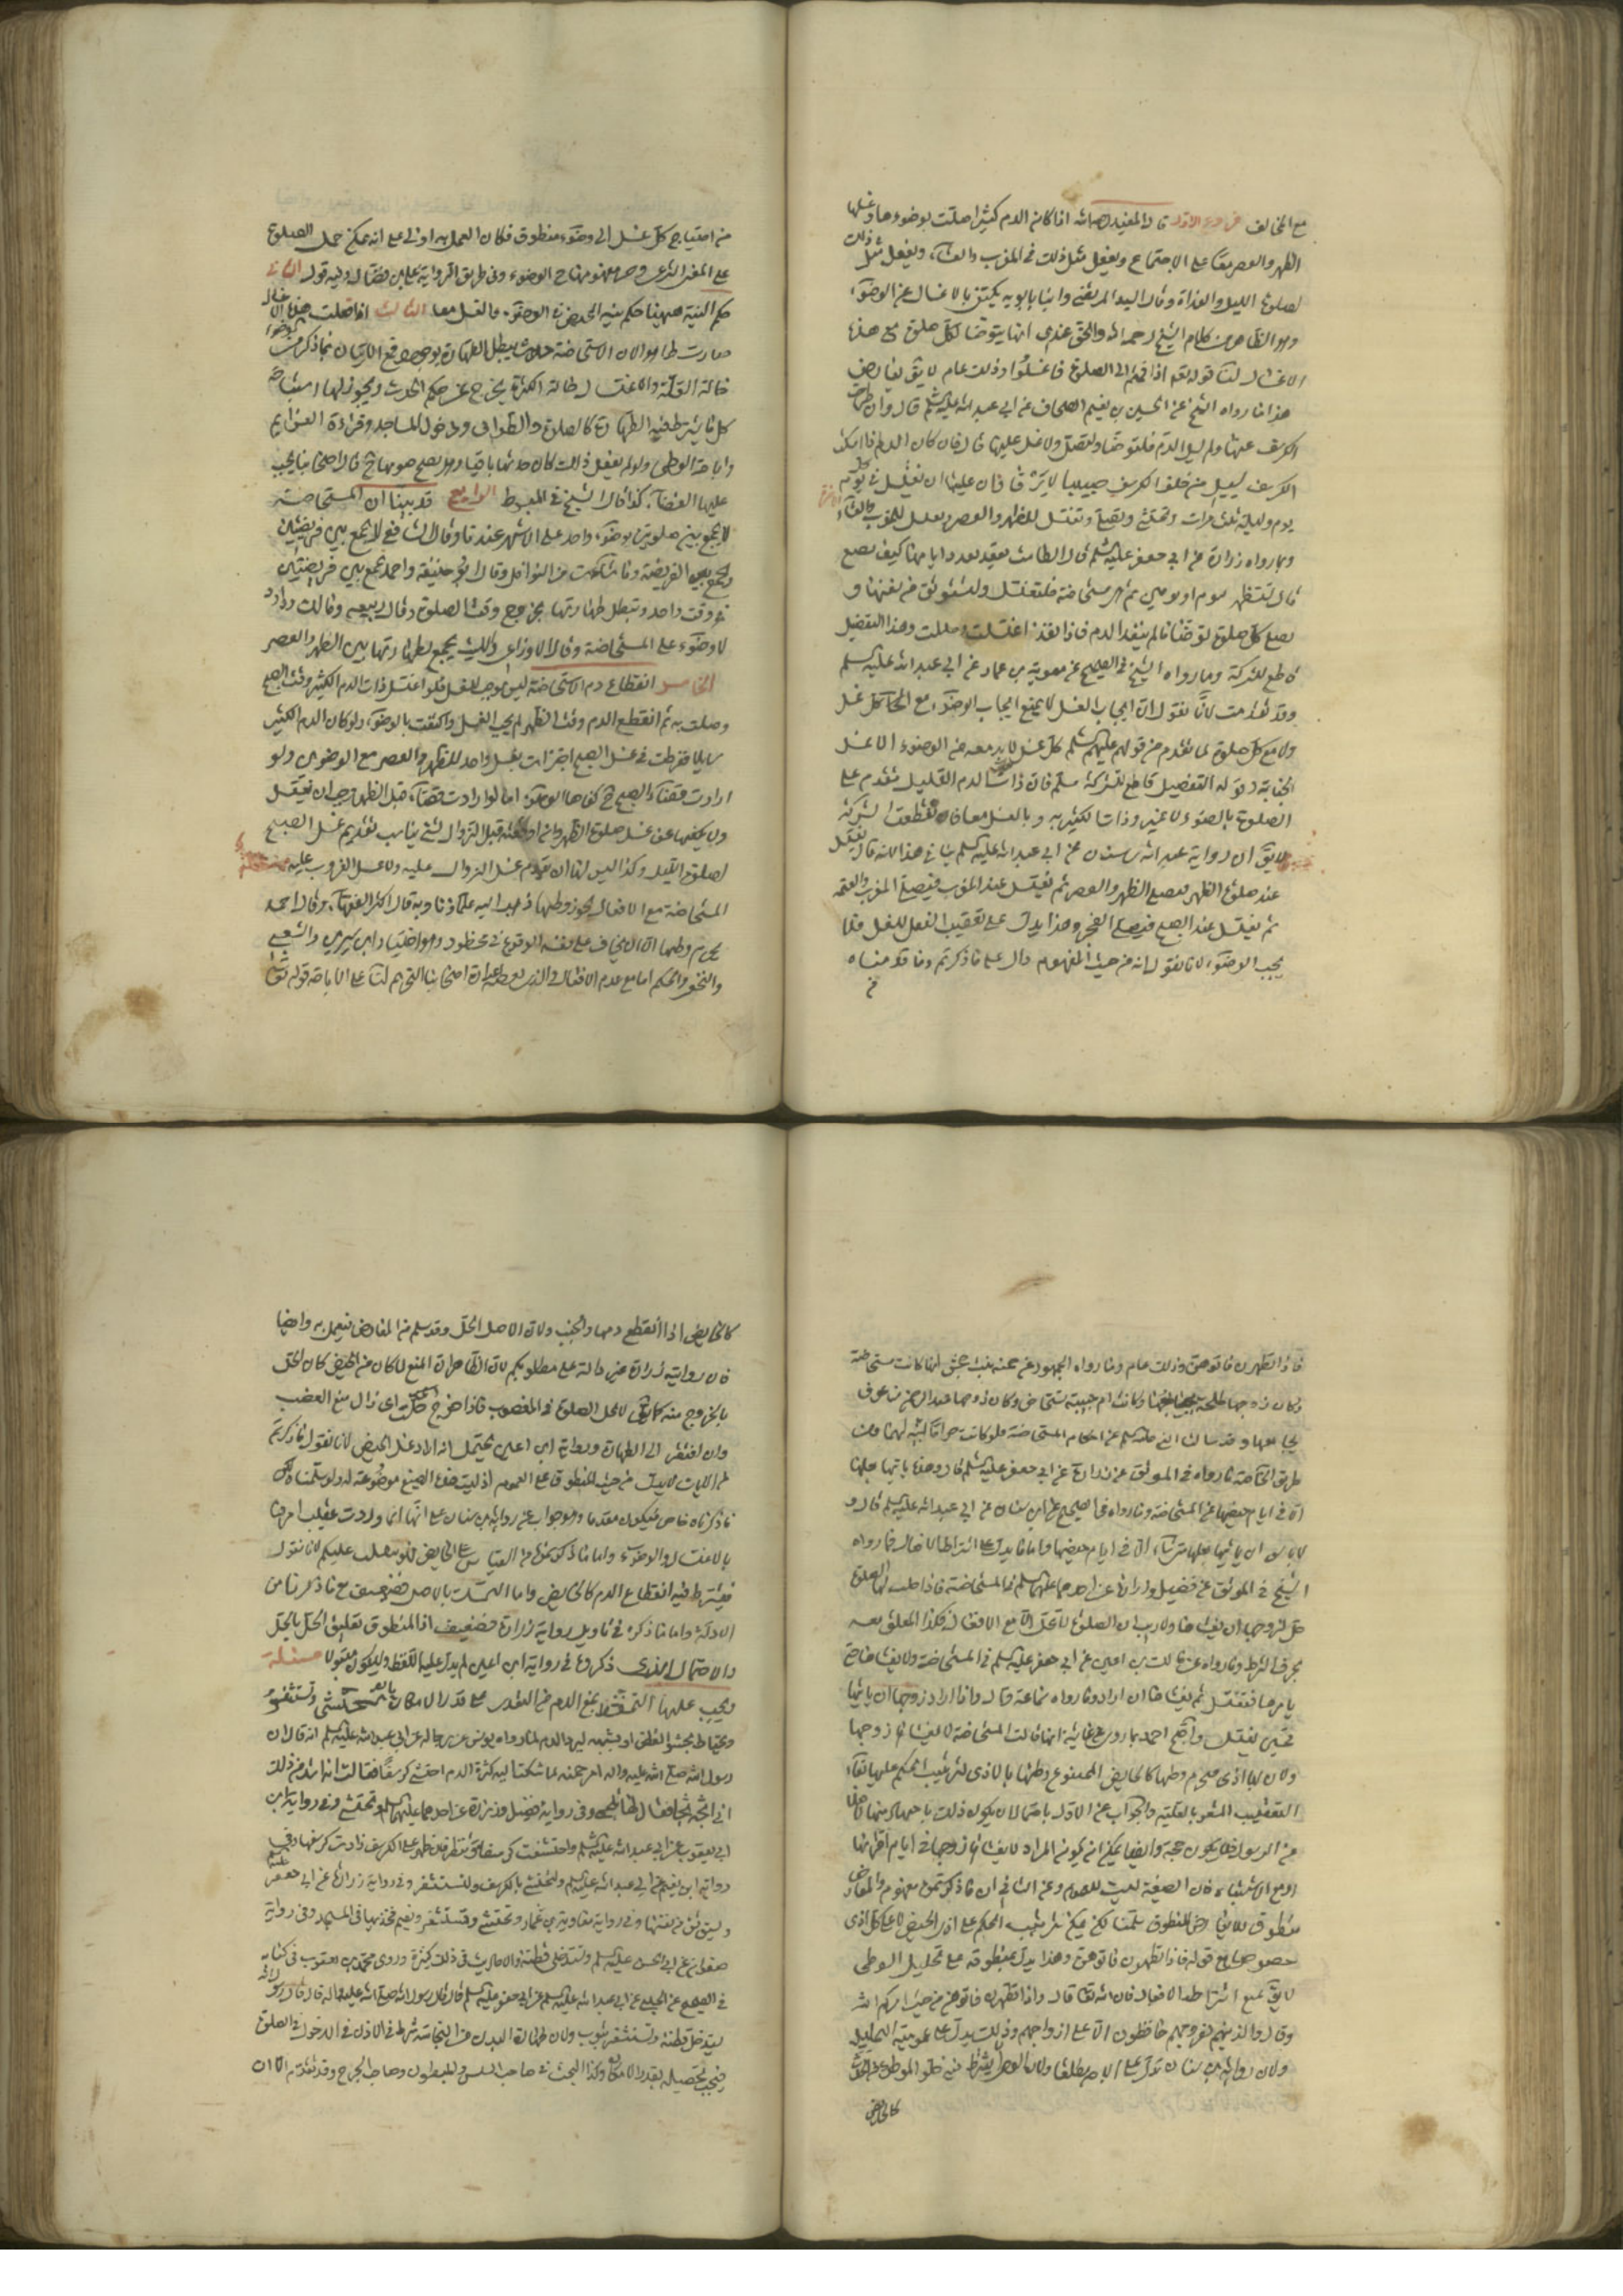 مع المخالف فروع الاول قال المفيد رحمه الله اذا كان الدم كثيرا صلت بوضوءها وغسلها
الظهر والعصر معا على الاجتماع وتفعل مثل ذلك في المغرب والعشاء وتفعل مثل ذلك
لصلوة الليل والغداة وقال السيد المرتضى وابنا بابويه يكتفى بالاغسال عن الوضوء
وهو الظاهر من كلام الشيخ رحمه الله والحق عندى انها يتوضا لكل صلوة مع هذه
الاغسال لنا قوله تعالى اذا قمتم الى الصلوة فاغسلوا وذلك عام لا يق يعارض
هذا ما رواه الشيخ عن الحسين بن نعيم الصحاف عن ابي عبد الله عليه السلم قال وان طرحت
الكرسف عنها ولم يسل الدم فلتوضا ولتصل ولا غسل عليها قال فان كان الدم اذا امسك
الكرسف يسيل من خلف الكرسف صبيبا لا يرقى فان عليها ان تغتسل في كل
يوم وليلة ثلث مرات وتحتشى وتصلى وتغتسل للظهر والعصر وتغتسل للمغرب والعشاء
وما رواه زرارة عن ابي جعفر عليه السلم قال الطامث تقعد بعدد ايامها كيف تصنع
قال تستظهر بيوم او يومين ثم هى مستحاضة فلتغتسل ولتستوثق من نفسها و
تصلى كل صلوة بوضوء ما لم ينفذ الدم فاذا نفذ اغتسلت وصلت وهذا التفصيل
قاطع للشركة وما رواه الشيخ في الصحيح عن معوية بن عمار عن ابي عبد الله عليه السلم
وقد تقدمت لانا نقول ان ايجاب الغسل لا يمنع ايجاب الوضوء مع كل غسل
ولا مع كل صلوة لما تقدم من قولهم عليهم السلم كل غسل لا بد معه من الوضوء الا غسل
الجنابة وقوله التفصيل قاطع للشركة مسلم فان ذات الدم القليل تقدم على
الصلوة بالوضوء لا غير وذات الكثير به وبالغسل معا فانقطعت الشركة
لا يق ان رواية عبد الله بن سنان عن ابي عبد الله عليه السلم ينافي هذا لانه قال تغتسل
عند صلوة الظهر فتصلى الظهر والعصر ثم تغتسل عند المغرب فتصلى المغرب والعتمة
ثم تغتسل عند الصبح فتصلى الفجر وهذا يدل على تعقيب الفعل للغسل فلا
يجب الوضوء لانا نقول انه من حيث المفهوم دال على ما ذكرتم وما قدمناه
من احتياج كل غسل الى وضوء منطوق فكان العمل به اولى على انه يمكن حمل الصلوة
على المعنى الشرعى وفي طريق الرواية على بن فضال وفيه قول الثانى
حكم النية هيهنا حكم نية الحيض في الوضوء والغسل معا الثالث اذا فعلت هذه الاغسال
صارت طاهرا لان الاستحاضة حدث يبطل الطهارة بوجوده فمع الاتيان بما ذكر من الوضوء
حالة القلة والاغسال حالة الكثرة يخرج عن حكم الحدث ويجوز لها استباحة
كل ما يشترط فيه الطهارة كالصلوة والطواف ودخول المساجد وقراءة العزايم
واباحة الوطى ولو لم تفعل ذلك كان حدثها باقيا ولم يصح صومها قال اصحابنا يجب
عليها القضاء كذا قال الشيخ في المبسوط الرابع قد بينا ان المستحاضة
لا تجمع بين صلوتين بوضوء واحد على الاشهر عندنا وقال الشافعى لا تجمع بين فريضتين
وتجمع بين الفريضة وما شاءت من النوافل وقال ابو حنيفة واحمد تجمع بين فريضتين
في وقت واحد وتبطل طهارتها بخروج وقت الصلوة وقال ربيعة ومالك وداود
لا وضوء على المستحاضة وقال الاوزاعى والليث يجمع بطهارتها بين الظهر والعصر
الخامس انقطاع دم الاستحاضة ليس بموجب للغسل فلو اغتسلت ذات الدم الكثير وقت الصبح
وصلت به ثم انقطع الدم وقت الظهر لم يجب الغسل واكتفت بالوضوء ولو كان الدم الكثير
سايلا ففرطت في غسل الصبح اجتزات بغسل واحد للظهر والعصر مع الوضوء ولو
ارادت قضاء الصبح كفاها الوضوء اما لو ارادت قضاء قبل الظهر وجب ان تغتسل
ولا يكفيها عن غسل صلوة الظهر
لصلوة الليل وكذا ليس لها ان تقدم غسل الزوال عليه ولا غسل الغروب عليه
المستحاضة مع الافعال يجوز وطيها ذهب اليه علماؤنا وبه قال اكثر الفقهاء وقال احمد
يحرم وطيها الا ان يخاف على نفسه الوقوع في محظور وهو اختيار ابن سيرين والشعبى
والنخعى والحكم اما مع عدم الافعال فالذى يعطيه عبارة اصحابنا التحريم لنا على الاباحة قوله تعالى
فاذا تطهرن فاتوهن وذلك عام وما رواه الجمهور عن حمنة بنت جحش انها كانت مستحاضة
وكان زوجها طلحة يجامعها وكانت ام حبيبة تستحاض وكان زوجها عبد الرحمن بن عوف
يجامعها وقد سالت النبى صلى الله عليه وسلم عن احكام المستحاضة فلو كانت حراما لبينه لهما ومن
طريق الخاصة ما رواه في الموثق عن زرارة عن ابي جعفر عليه السلم قال وهذه ياتيها بعلها
الا في ايام حيضها عن المستحاضة وما رواه في الصحيح عن ابن سنان عن ابي عبد الله عليه السلم قال و
لا باس ان ياتيها بعلها متى شاء الا في ايام حيضها واما ما يدل على اشتراط الافعال فما رواه
الشيخ في الموثق عن فضيل وزرارة عن احدهما عليهما السلم في المستحاضة فاذا حلت لها الصلوة
حل لزوجها ان يغشاها ولا ريب ان الصلوة لا تحل الا مع الافعال فكذا المعلق بعده
بحرف الشرط وما رواه عن مالك بن اعين عن ابي جعفر عليه السلم في المستحاضة ولا يغشاها حتى
يامرها فتغتسل ثم يغشاها ان اراد وما رواه سماعة قال واذا اراد زوجها ان ياتيها
فحين تغتسل واحتج احمد بما روى عن عايشة انها قالت المستحاضة لا يغشاها زوجها
ولان بها اذى فيحرم وطيها كالحايض الممنوع وطئها بالاذى لترتيب الحكم عليه بفاء
التعقيب المشعر بالعلية والجواب عن الاول باحتمال ان يكون ذلك باجتهاد منها لا نقلا
عن الرسول فلا يكون حجة وايضا يمكن ان يكون المراد لا يغشاها زوجها في ايام اقرائها
او مع الاشتباه فان الصيغة ليست للعموم وعن الثانى ان ما ذكرتموه مفهوم والمعارض
منطوق فلا يعارض المنطوق سلمنا لكن يمكن ترتيب الحكم على اذى الحيض لا على كل اذى
خصوصا مع قوله فاذا تطهرن فاتوهن وهذا يدل بمنطوقه على تحليل الوطى
لا يق نمنع اشتراط الافعال فان الله تعالى قال فاذا تطهرن فاتوهن من حيث امركم الله
وقال والذين هم لفروجهم حافظون الا على ازواجهم وذلك يدل على عمومية التحليل
ولان رواية ابن سنان تدل على الاباحة مطلقا ولان الوطى لا يشترط فيه خلو الموطوءة عن الحدث
كالحايض اذا انقطع دمها والجنب ولان الاصل الحل وقد سلم عن المعارض فيعمل به وايضا
فان رواية زرارة غير دالة على مطلوبكم لان الظاهر ان المنع لما كان من الحيض كان الحل
بالخروج منه كما يق لا تحل الصلوة في المغصوب فاذا خرج حلت اى زال منع الغصب
وان افتقر الى الطهارة ورواية ابن اعين يحتمل انه اراد غسل الحيض لانا نقول ما ذكرتم
من الايات لا يدل من حيث المنطوق على العموم اذ ليست هذه الصيغ موضوعة له ولو سلمنا ذلك
ما ذكرناه خاص فيكون مقدما وهو جواب عن رواية ابن سنان على انها انما وردت عقيب امرها
بالاغتسال والوضوء واما ما ذكرتموه من القياس على الحايض فلو ينقلب عليكم لانا نقول
فيشترط فيه انقطاع الدم كالحايض واما التمسك بالاصل فضعيف مع ما ذكرنا من
الادلة واما ما ذكره في تاويل رواية زرارة فضعيف اذ المنطوق تعليق الحل بالحل
والاحتمال الذى ذكروه في رواية ابن اعين لم يدل عليه اللفظ فلا يكون مقبولا مسئلة
ويجب عليها التحفظ بمنع الدم من التعدى على قدر الامكان وتستثفر
وتحتاط بحشو القطن او يشبهه ليرد الدم لما رواه يونس عن رجاله عن ابي عبد الله عليه السلم انه قال ان
رسول الله صلى الله عليه واله امر حمنة لما شكت اليه كثرة الدم احتشى كرسفا فقالت انه اشد من ذلك
انى اثجه ثجا فقال لها تلجمى وفي رواية فضيل وزرارة عن احدهما عليهما السلم وتحتشى وفي رواية ابن
ابي يعفور عن ابي عبد الله عليه السلم واحتشت كرسفا وتنظر فان ظهر على الكرسف زادت كرسفها وفي
رواية ابن نعيم عن ابي عبد الله عليه السلم ولتحتشى بالكرسف ولتستثفر وفي رواية زرارة عن ابي جعفر عليه السلم
وتستوثق من نفسها وفي رواية معاوية بن عمار وتحتشى وتستثفر وتضم فخذيها في المسجد وفي رواية
صفوان عن ابي الحسن عليه السلم وتستدخل قطنة والاحاديث في ذلك كثيرة وروى محمد بن يعقوب في كتابه
في الصحيح عن الحلبى عن ابي عبد الله عليه السلم عن ابي جعفر عليه السلم قال سئل رسول الله صلى الله عليه واله قال قال رسول الله
تستدخل قطنة وتستثفر بثوب ولان طهارة البدن من النجاسة شرط في الاذن في الدخول في الصلوة
فيجب تحصيله بقدر الامكان وكذا البحث في صاحب السلس والمبطون وصاحب الجرح وقد تقدم الا ان